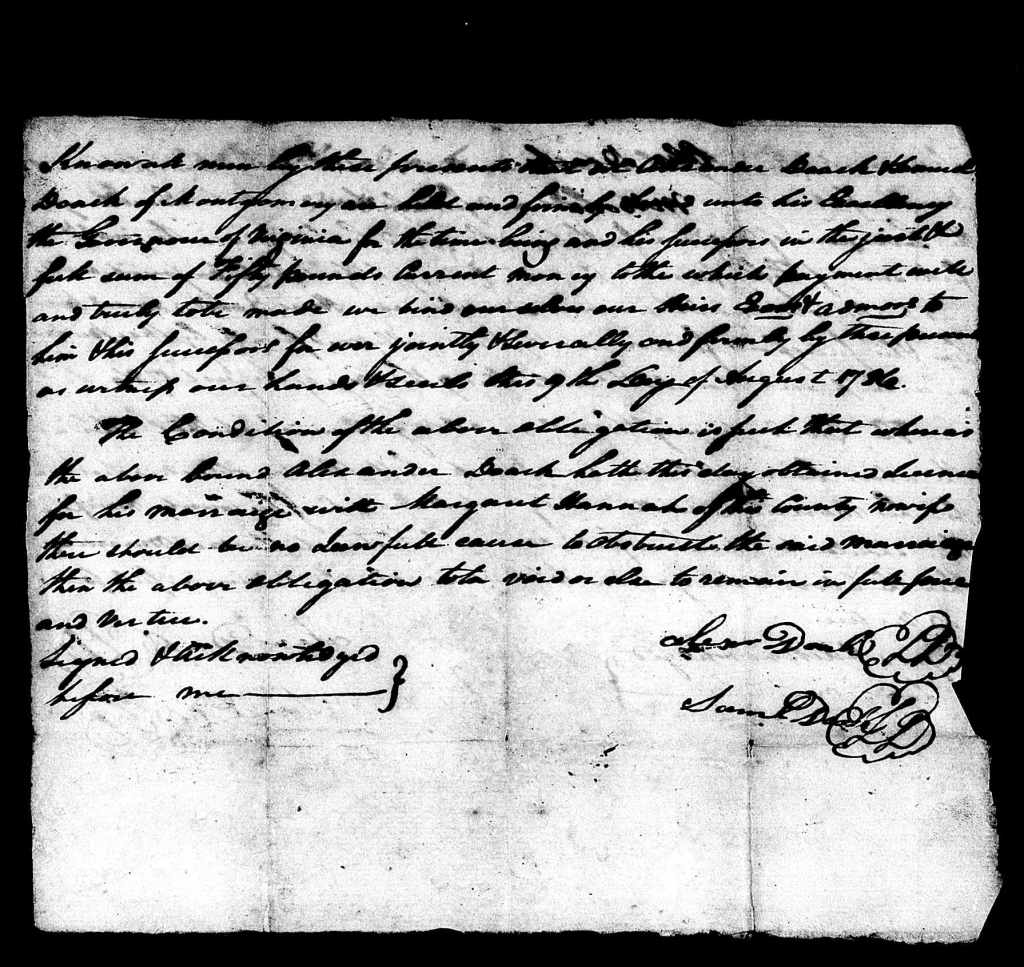 Know all men by these presents that we Alexander Doack & Samuel
Doack of Montgomery are held and firmly bound unto his Excellency
the Governour of Virginia for the time being and his successors in the just &
full sum of Fifty pounds Current money to the which payment well
and truly to be made we bind ourselves our Heirs Exors & admors to
him & his successors for ever jointly & severally and firmly by these presents
as witness our hands & seals this 9th Day of August 1786.
The Condition of the above obligation is such that whereas
the above bound Alexander Doack hath this day obtained licence
for his marriage with Margaret Hannah of this County now if
there should be no Lawfull cause to obstruct the said marriage
then the above obligation to be void or else to remain in full force
and virtue.
Signed & acknowledged
before me
Alexr Doack LS
Saml Doack LS